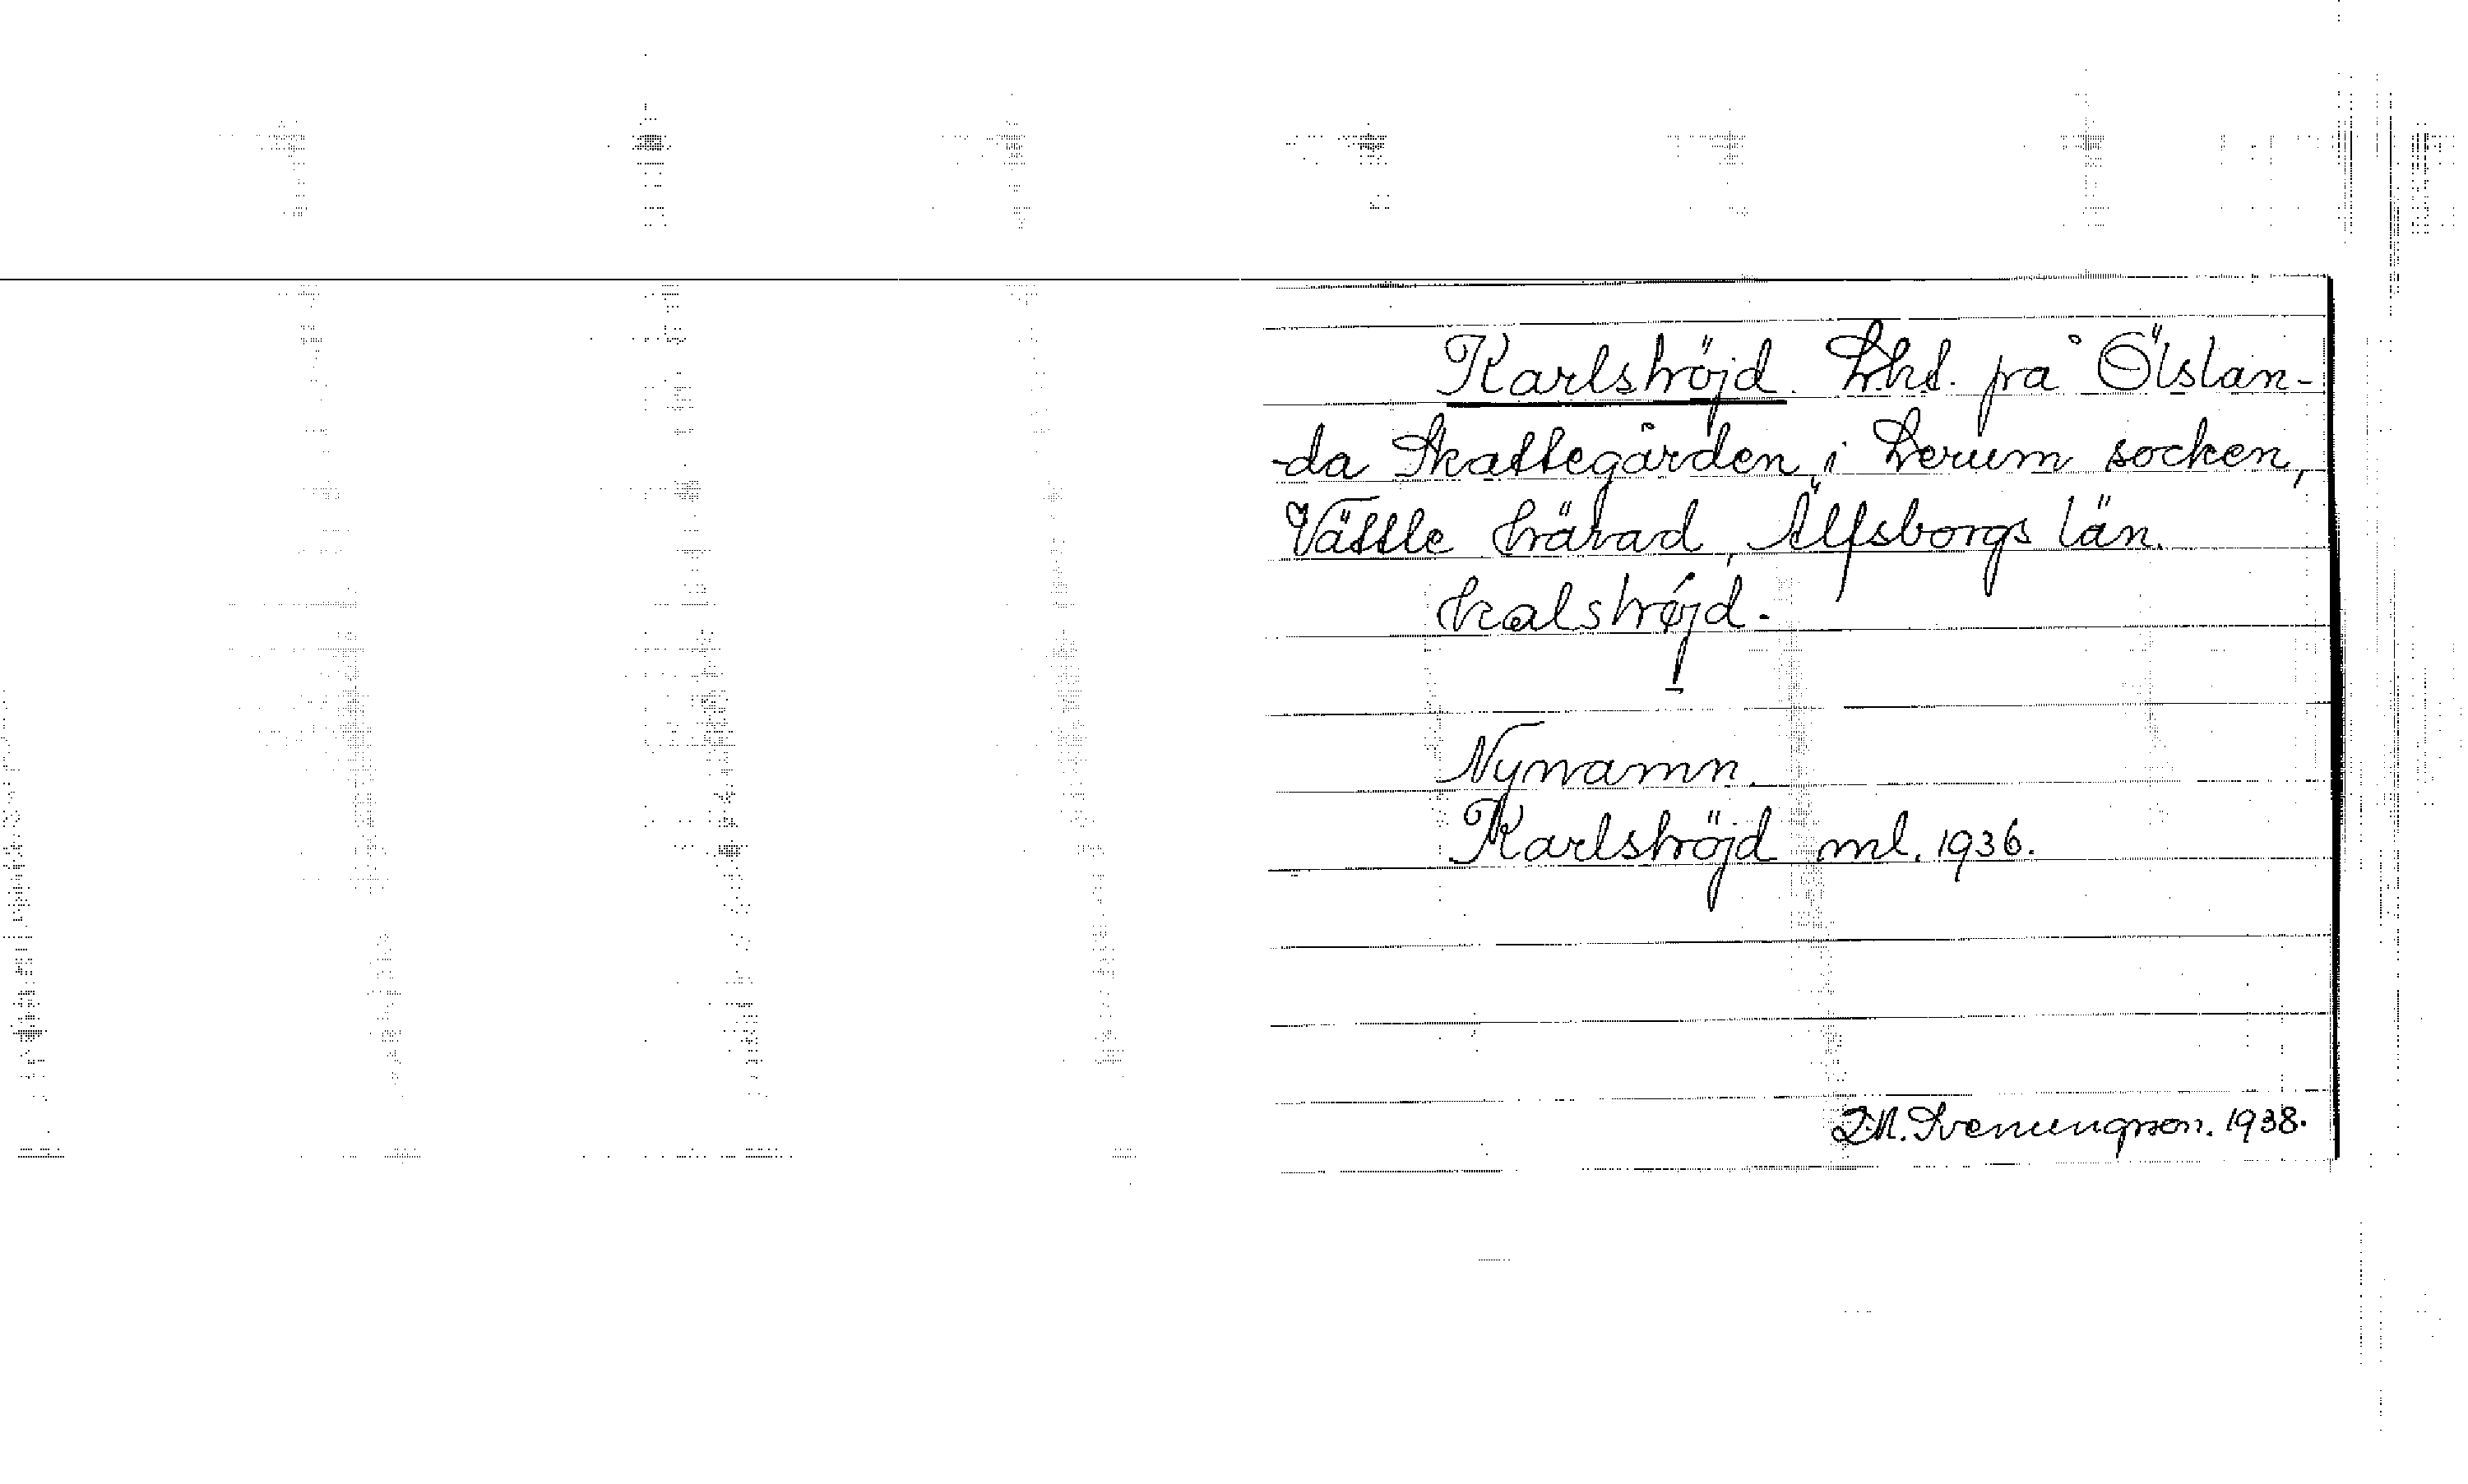 Karlshöjd. Lht. på Ölslan-
-da Skattegården i Lerum socken,
Vättle härad, Älfsborgs län.
Nynamn.
Karlshöjd ml. 1936.
Svenungsson. 1938.